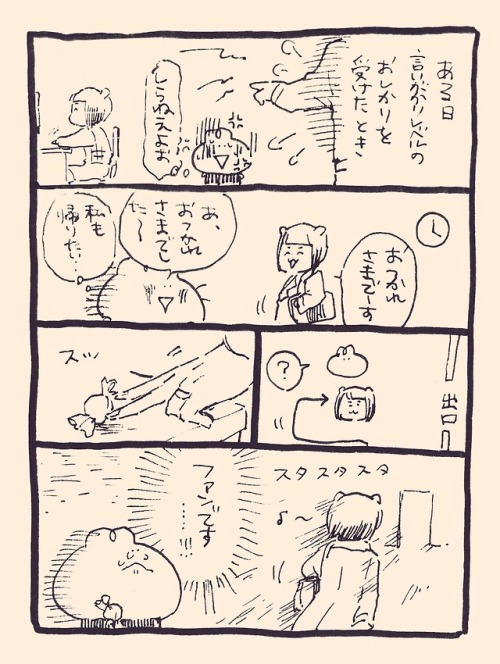 ある日
言いがかりレベルの
おしかりを
受けたとき
しらねえよぉ
おつかれ
さまでーす
あ、
おつかれ
さまでし
た〜
私も
帰りたい…
出口
?
スッ
スタスタスタ
♪〜
ファンです
……!!